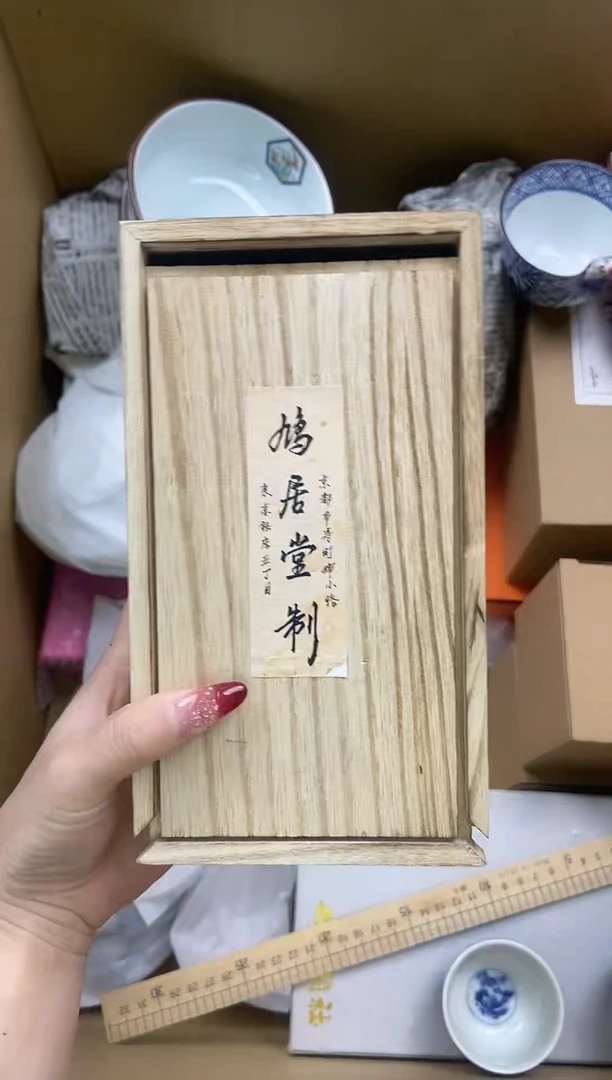 京都市寺町姉小路
鳩居堂制
東京銀座五丁目